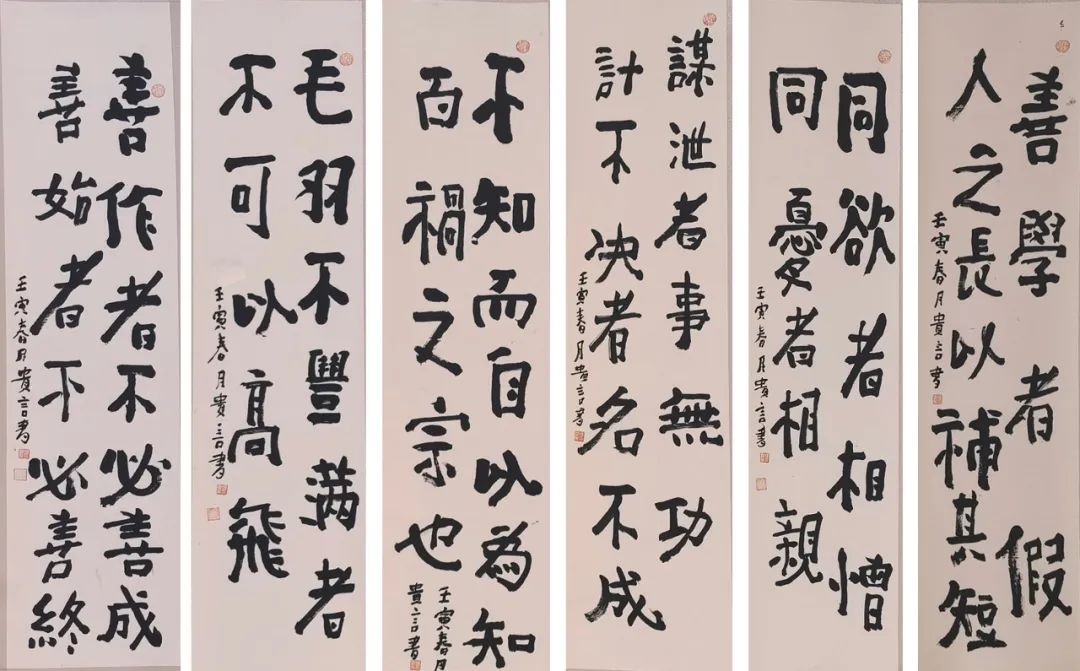 善學者假
人之長以補其短
壬寅春月貴言書
同欲者相憎
同憂者相親
壬寅春月貴言書
謀泄者事無功
計不决者名不成
壬寅春月貴言書
不知而自以為知
百禍之宗也
壬寅春月
貴言書
毛羽不豐滿者
不可以高飛
壬寅春月貴言書
善作者不必善成
善始者不必善終
壬寅春月貴言書